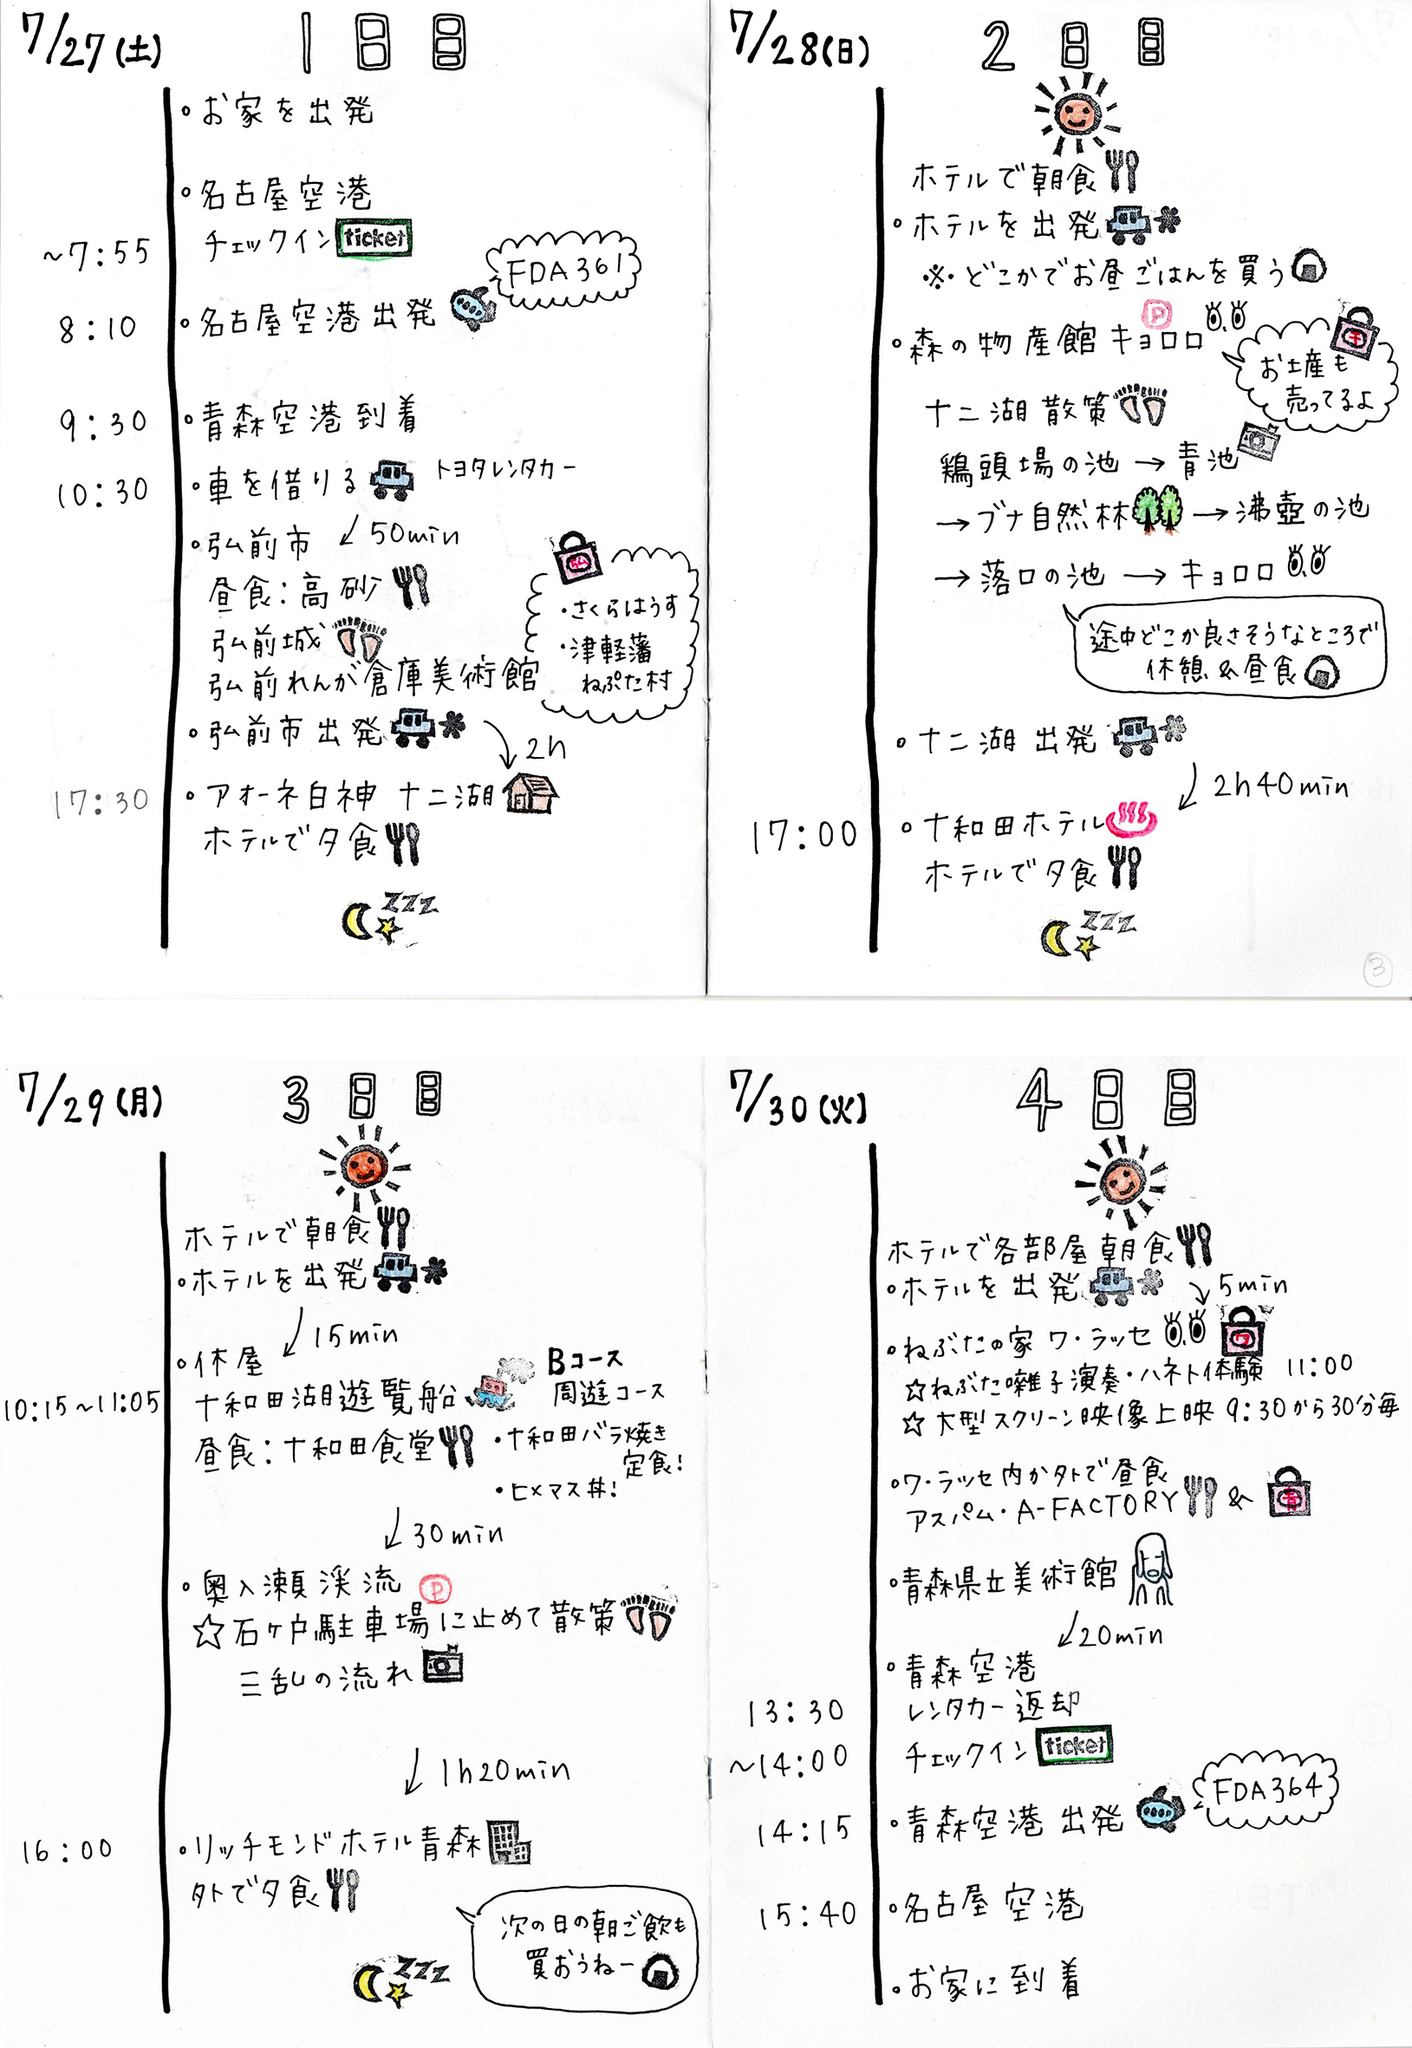 7/27(土) 1日目
・お家を出発
・名古屋空港
~7:55 チェックイン ticket
FDA361
8:10 ・名古屋空港出発
9:30 ・青森空港到着
10:30 ・車を借りる トヨタレンタカー
・弘前市 ↙50min
昼食:高砂
弘前城
弘前れんが倉庫美術館
弘
・さくらはうす
・津軽藩
ねぷた村
・弘前市出発
2h
17:30 ・アオーネ白神 十二湖
ホテルで夕食
zzz
7/28(日) 2日目
ホテルで朝食
・ホテルを出発
※どこかでお昼ごはんを買う
P
・森の物産館キョロロ
十
お土産も
売ってるよ
十二湖散策
鶏頭場の池→青池
→ブナ自然林→沸壺の池
→落口の池→キョロロ
途中どこか良さそうなところで
休憩&昼食
・十二湖出発
↙2h40min
17:00 ・十和田ホテル
ホテルで夕食
zzz
3
7/29(月) 3日目
ホテルで朝食
・ホテルを出発
↙15min
・休屋
10:15~11:05 十和田湖遊覧船
Bコース
周遊コース
昼食:十和田食堂
・十和田バラ焼き
定食!
・ヒメマス丼!
↙30min
・奥入瀬渓流 P
☆石ヶ戸駐車場に止めて散策
三乱の流れ
↓1h20min
16:00 ・リッチモンドホテル青森
外で夕食
次の日の朝ご飯も
買おうねー
zzz
7/30(火) 4日目
ホテルで各部屋朝食
・ホテルを出発
↘5min
・ねぶたの家 ワ・ラッセ ワ
☆ねぶた囃子演奏・ハネト体験 11:00
☆大型スクリーン映像上映 9:30から30分毎
・ワ・ラッセ内か外で昼食
アスパム・A-FACTORY & 青
・青森県立美術館
↙20min
・青森空港
13:30 レンタカー返却
~14:00 チェックイン ticket
FDA364
14:15 ・青森空港出発
15:40 ・名古屋空港
・お家に到着